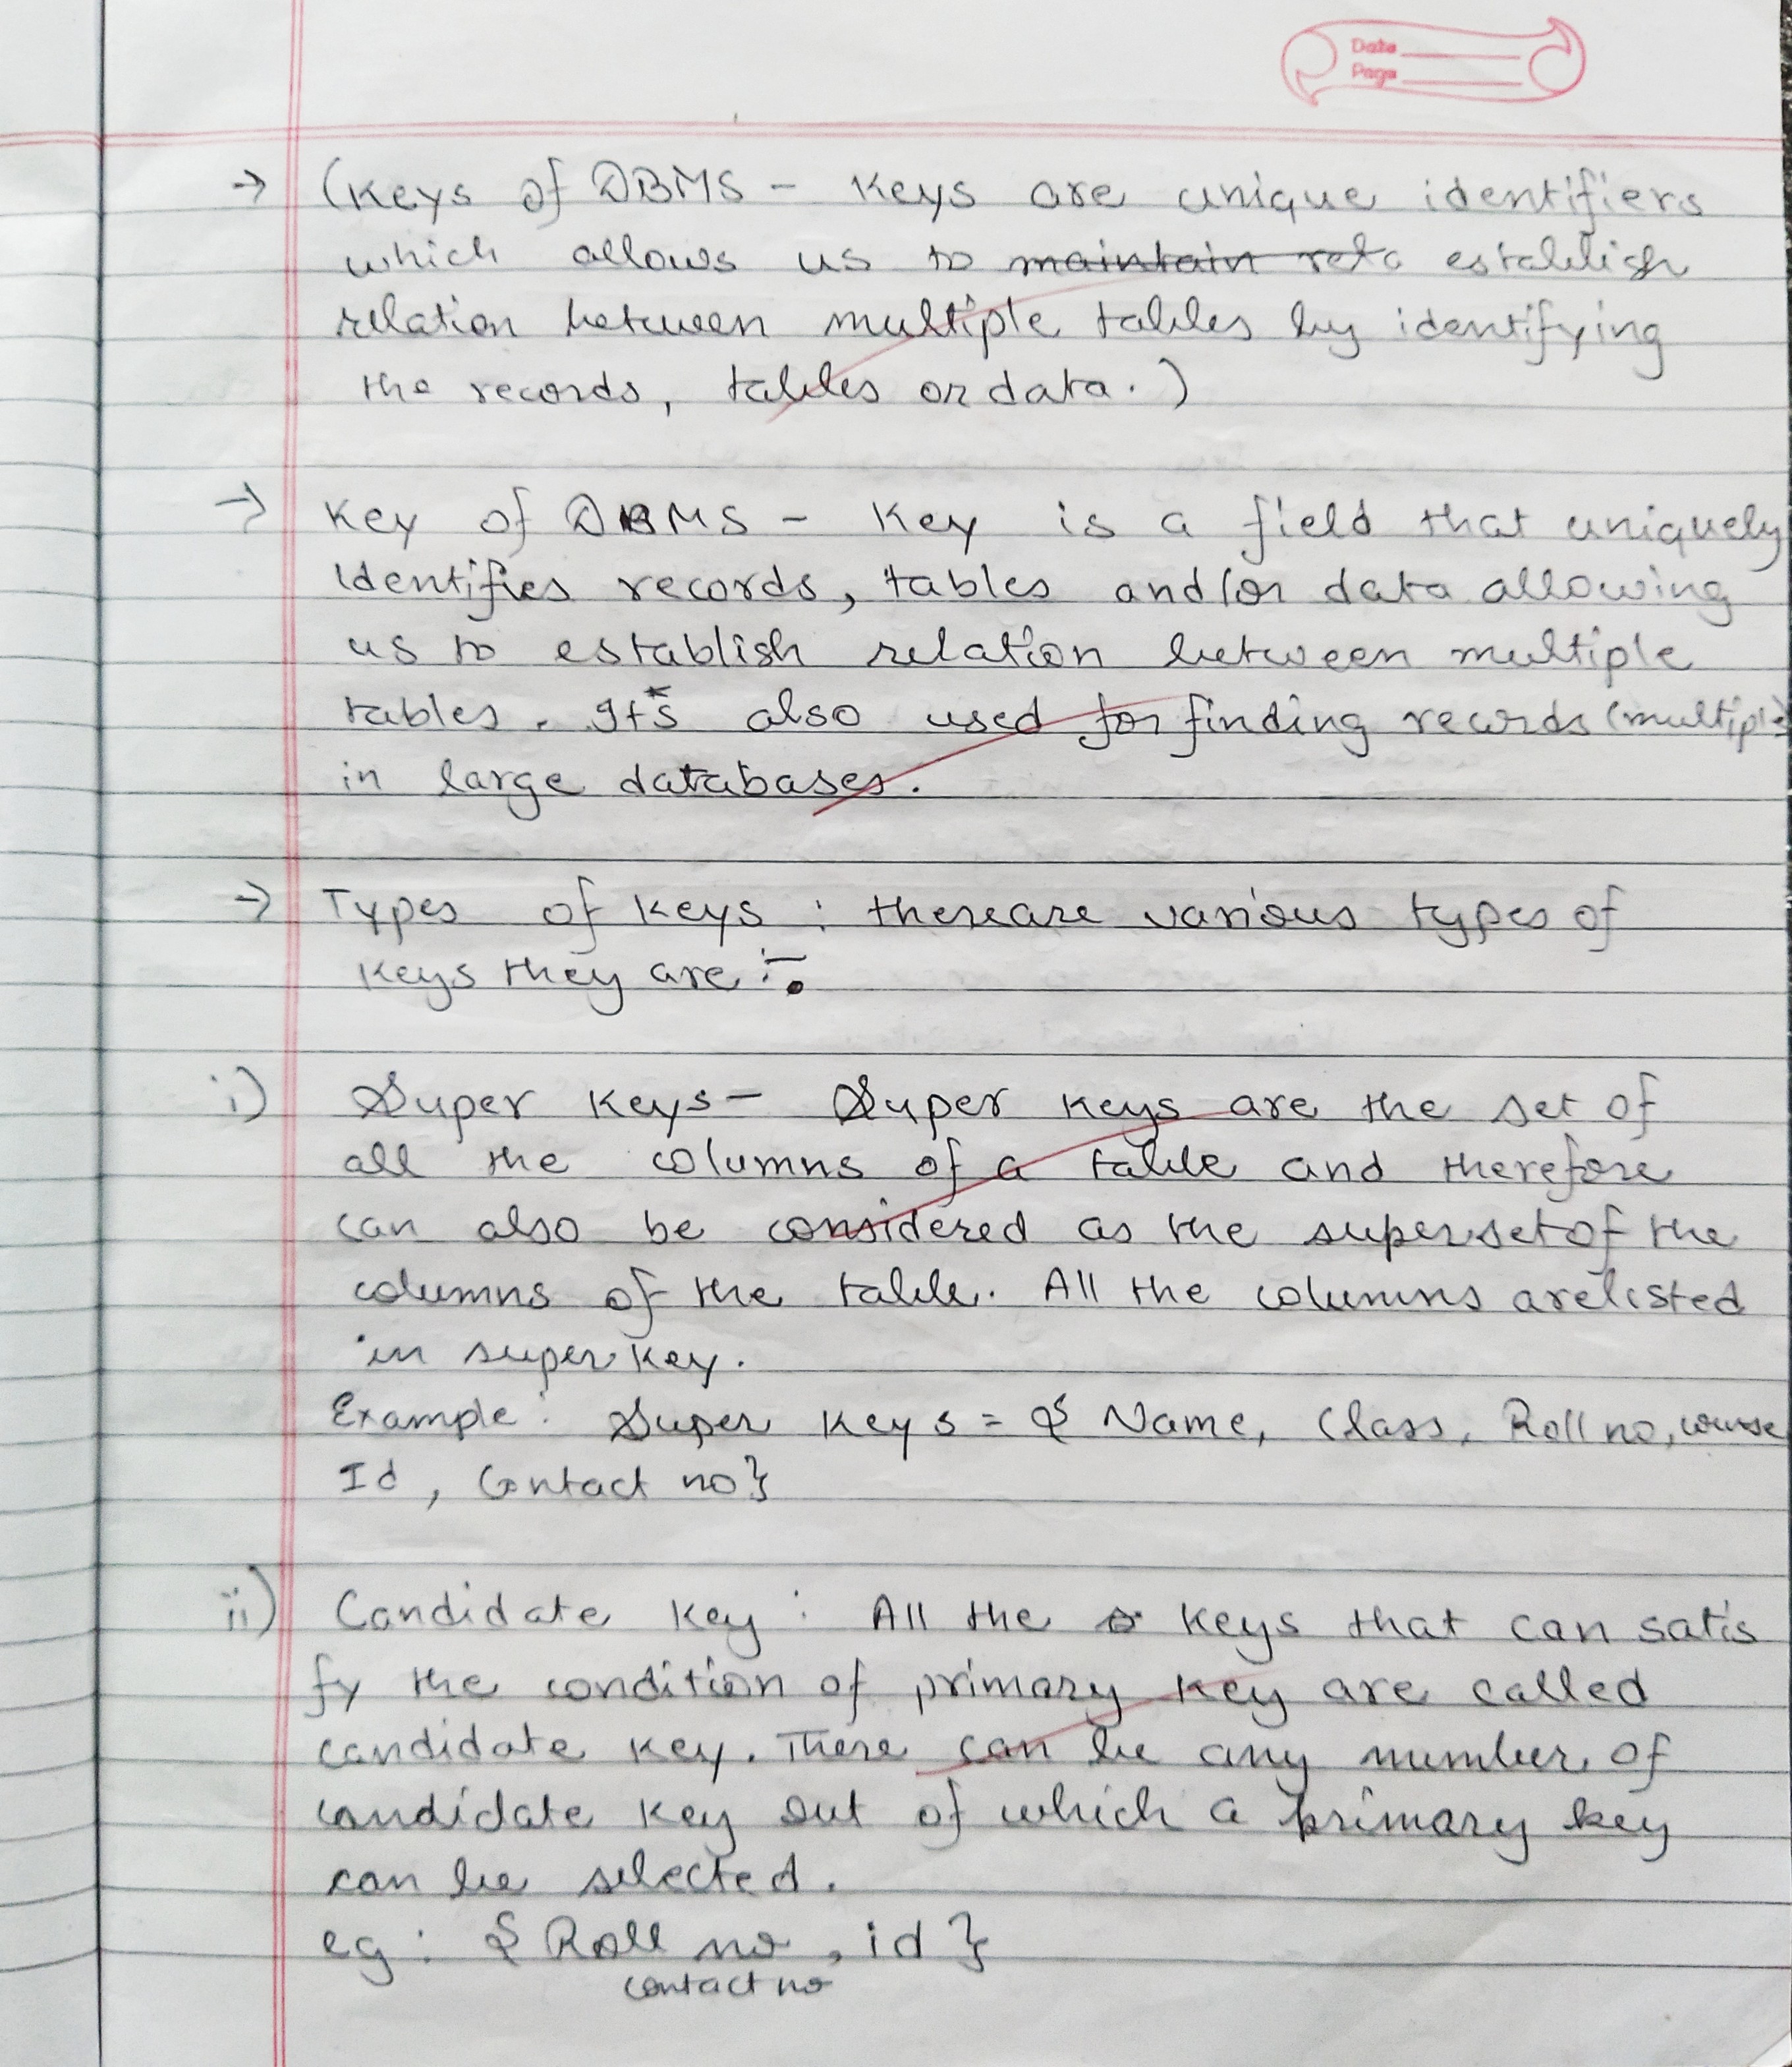 Date
Page
→ (Keys of DBMS - Keys are unique identifiers
which allows us to maintain rela establish
relation between multiple tables by identifying
the records, tables or data.)
→ Key of DBMS - Key is a field that uniquely
identifies records, tables and/or data allowing
us to establish relation between multiple
tables. It's also used for finding records (multiple
in large databases.
→ Types of keys : there are various types of
keys they are :-
i) Super Keys - Super keys are the set of
all the columns of a table and therefore
can also be considered as the superset of the
columns of the table. All the columns are listed
in super key.
Example : Super Keys = { Name, Class, Roll no, course
Id, Contact no}
ii) Candidate key : All the keys that can satis
fy the condition of primary key are called
candidate key. There can be any number of
candidate key out of which a primary key
can be selected.
eg : { Roll no, id }
contact no